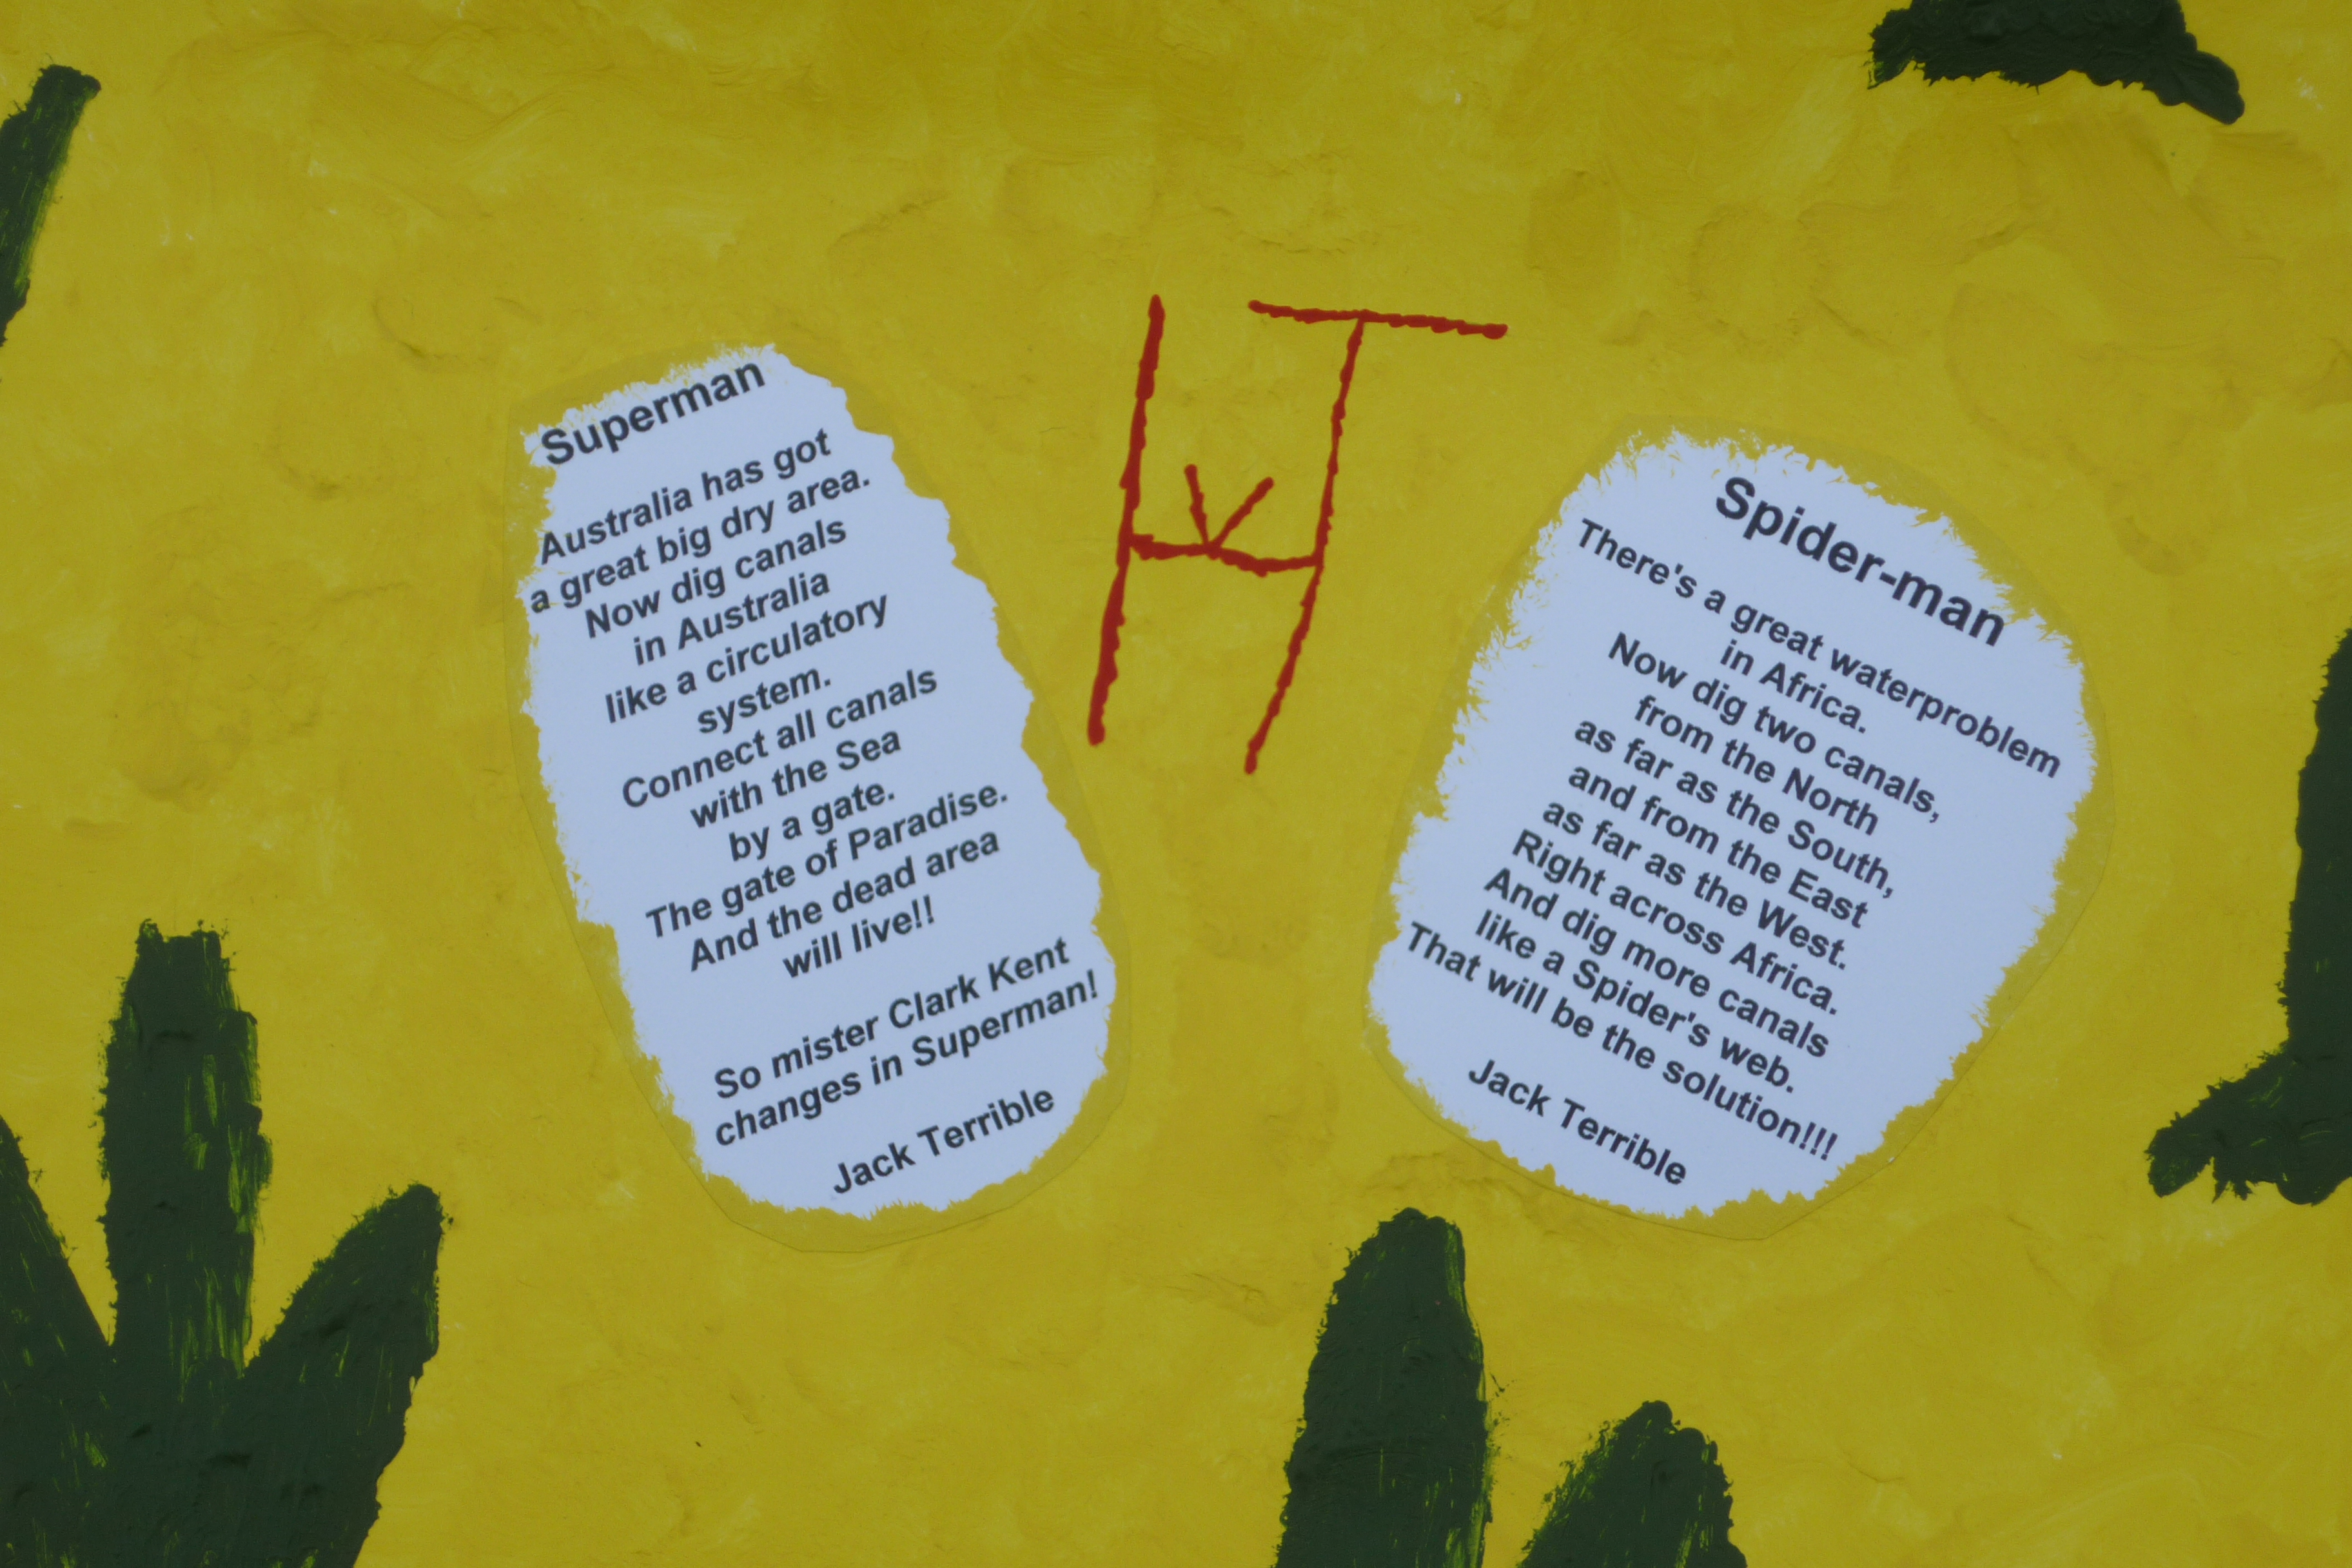 Superman
Australia has got
a great big dry area.
Now dig canals
in Australia
like a circulatory
system.
Connect all canals
with the Sea
by a gate.
The gate of Paradise.
And the dead area
will live!!
So mister Clark Kent
changes in Superman!
Jack Terrible
Spider-man
There's a great waterproblem
in Africa.
Now dig two canals,
from the North
as far as the South,
and from the East
as far as the West.
Right across Africa.
And dig more canals
like a Spider's web.
That will be the solution!!!
Jack Terrible